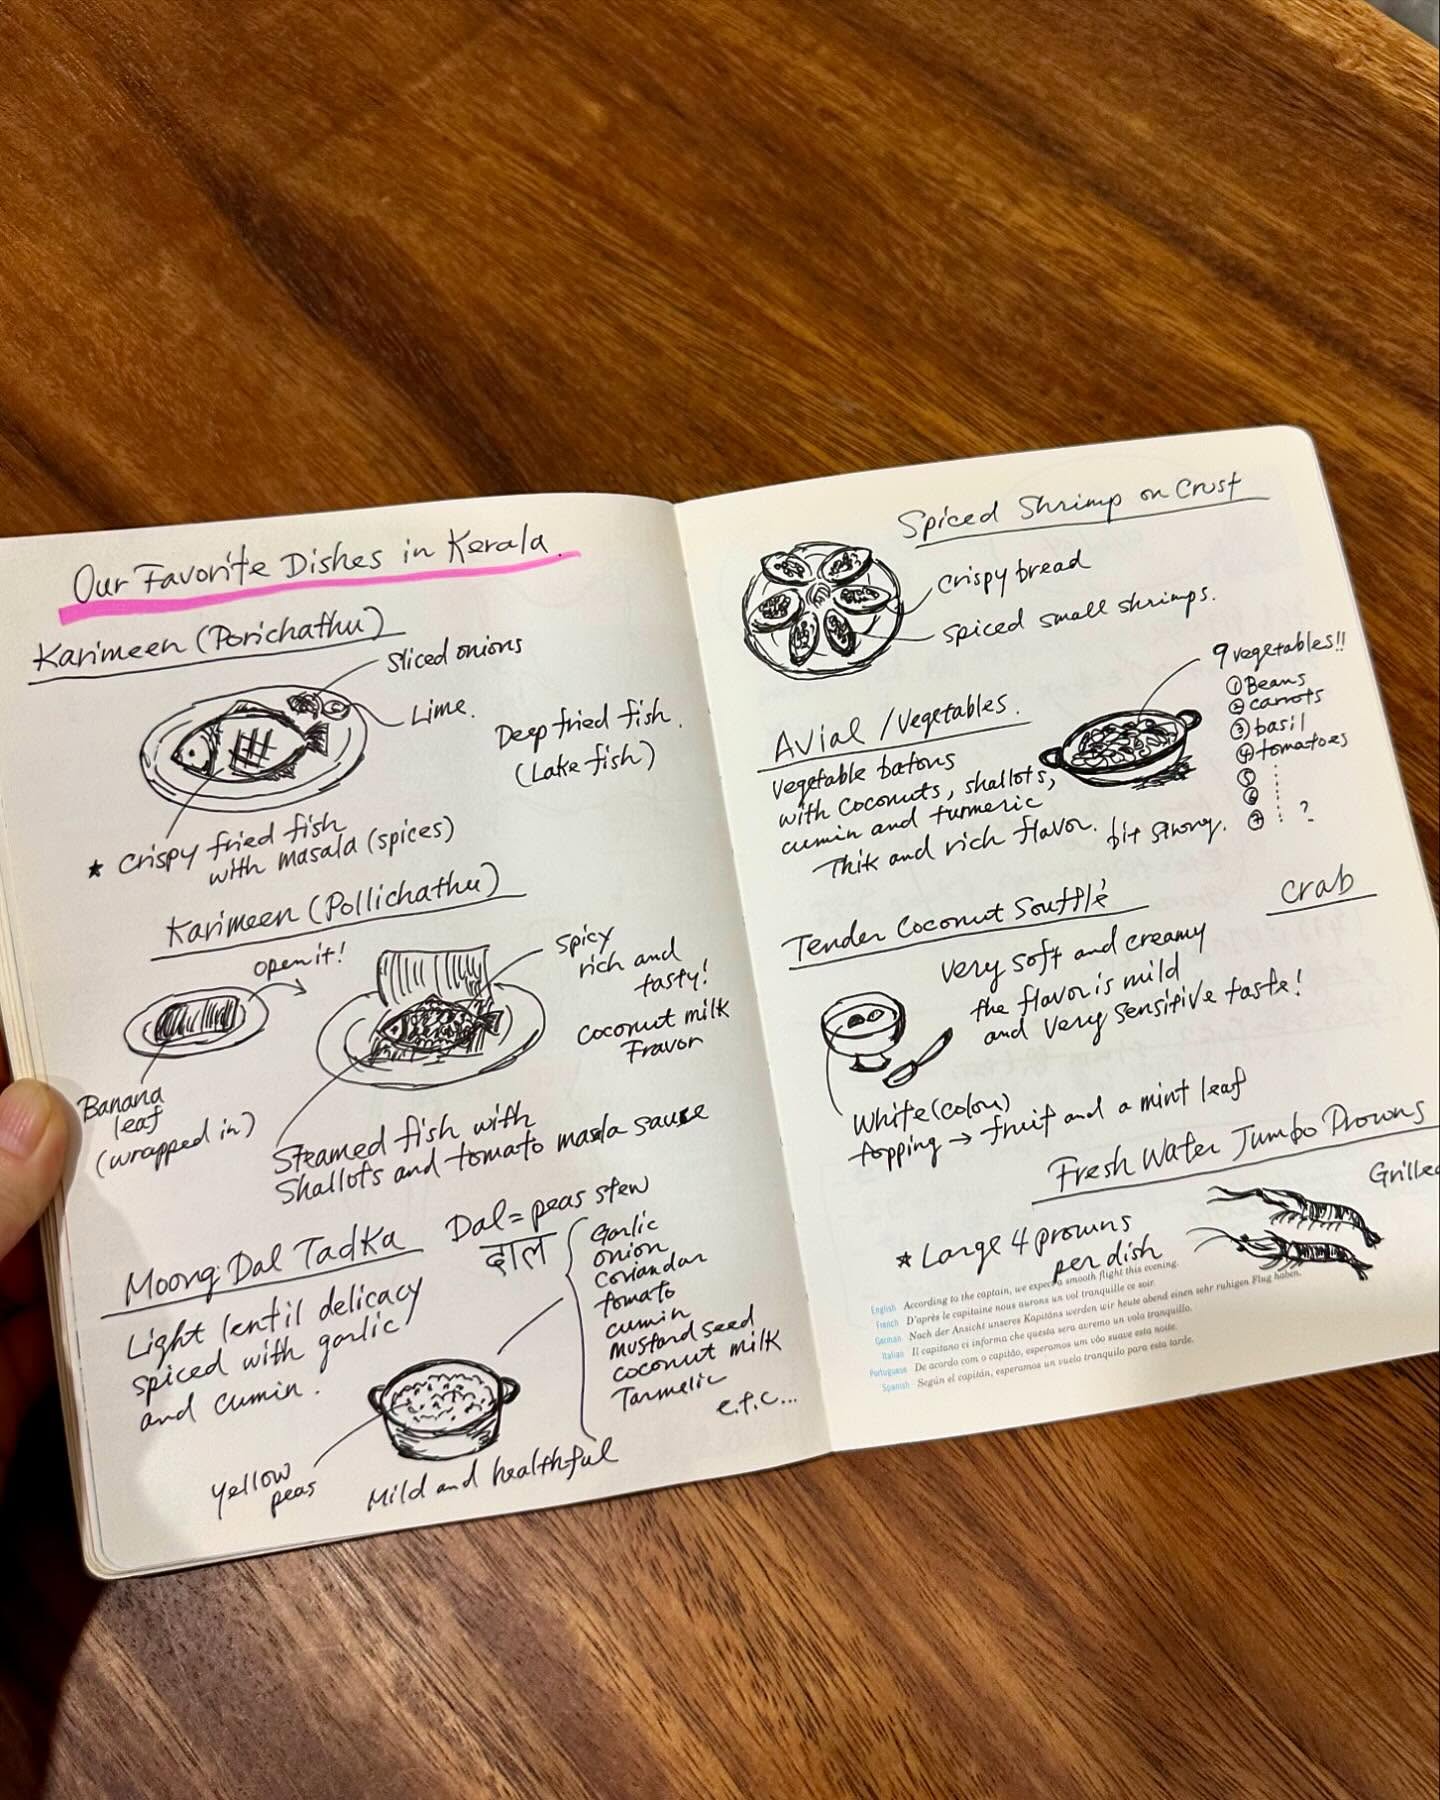 Our Favorite Dishes in Kerala.
Karimeen (Porichathu)
Sliced onions
Lime.
Deep fried fish.
(Lake fish)
★ Crispy fried fish
with masala (spices)
Karimeen (Pollichathu)
open it!
Spicy
rich and
tasty!
Coconut milk
Fravor
Banana
leaf
(wrapped in)
Steamed fish with
Shallots and tomato masala sauce
Moong Dal Tadka
Dal = peas stew
दाल
Light lentil delicacy
spiced with garlic
and cumin.
Garlic
onion
Coriandar
tomato
cumin
mustard seed
coconut milk
Tarmelic
e.t.c...
Yellow
peas
Mild and healthful
Spiced Shrimp on Crust
Crispy bread
Spiced small shrimps.
Avial / Vegetables.
Vegetable batons
with coconuts, shallots,
cumin and turmeric
Thik and rich flavor. bit strong.
9 vegetables!!
① Beans
② carrots
③ basil
④ tomatoes
⑤
⑥
⑦ ?
Crab
Tender Coconut Soufflé
very soft and creamy
the flavor is mild
and very sensitive taste!
White (colour)
topping → fruit and a mint leaf
Fresh Water Jumbo Prowns
Grilled
★ Large 4 prowns
per dish
English According to the captain, we expect a smooth flight this evening.
French D'après le capitaine nous aurons un vol tranquille ce soir.
German Nach der Ansicht unseres Kapitäns werden wir heute abend einen sehr ruhigen Flug haben.
Italian Il capitano ci informa che questa sera avremo un volo tranquillo.
Portuguese De acordo com o capitão, esperamos um vôo suave esta noite.
Spanish Según el capitán, esperamos un vuelo tranquilo para esta tarde.